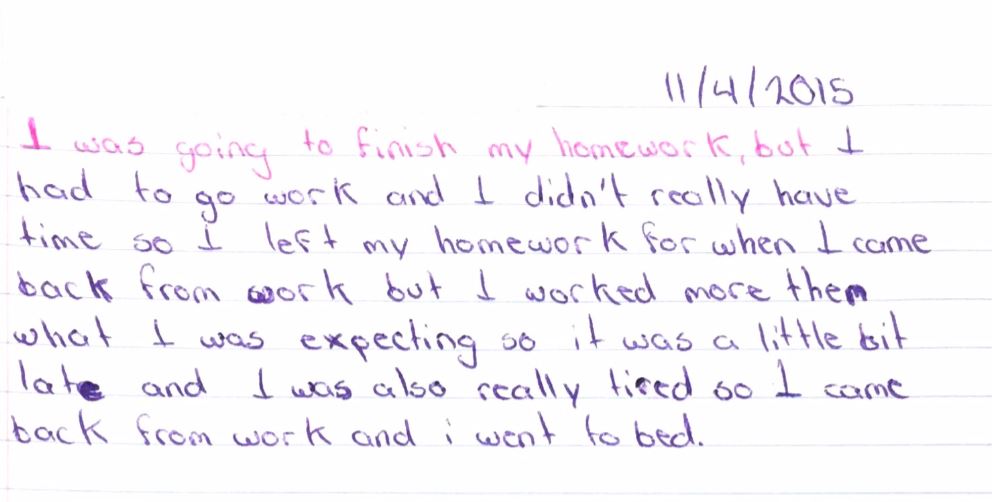 11/4/2015
I was going to finish my homework, but I
had to go work and I didn't really have
time so I left my homework for when I came
back from work but I worked more then
what I was expecting so it was a little bit
late and I was also really tired so I came
back from work and i went to bed.